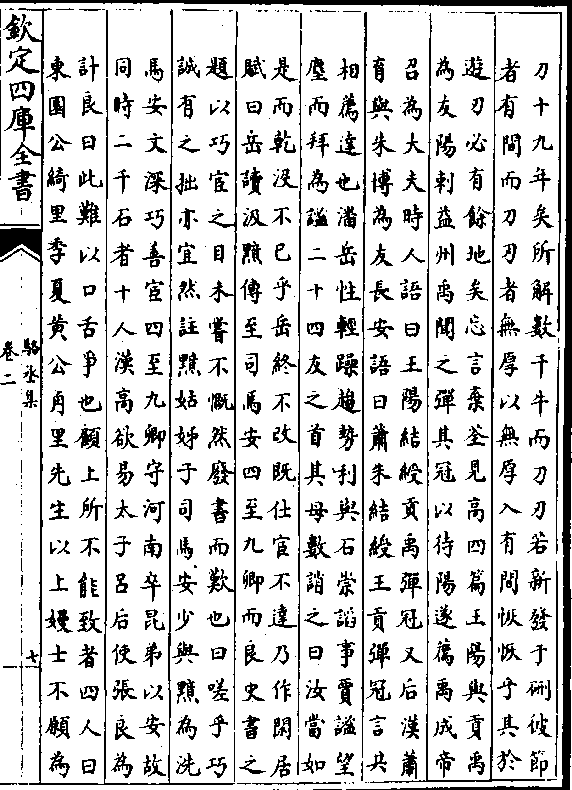 刀十九年矣所解數千牛而刀刃若新發于硎彼節
者有間而刀刃者無厚以無厚入有間恢恢乎其於
遊刃必有餘地矣忘言棄荃見高四篇王陽與貢禹
為友陽刺益州禹聞之彈其冠以待陽遂薦禹成帝
召為大夫時人語曰王陽結綬貢禹彈冠又后漢蕭
有與朱博為友長安語曰蕭朱結綬王貢彈冠言其
相薦達也潘岳性輕躁趨勢利與石崇諂事賈謐望
塵而拜為謐二十四友之首其母數誚之曰汝當如
是而乾沒不已乎岳終不改既仕宦不達乃作閑居
賦曰岳讀汲黯傳至司馬安四至九卿而良史書之
題以巧宦之目未嘗不慨然廢書而歎也曰嗟乎巧
誠有之拙亦宜然註黯姑姊子司馬安少與黯為洗
馬安文深巧善宦四至九卿守河南卒昆弟以安故
同時二千石者十人漢高欲易太子呂后使張良為
計良曰此難以口舌爭也顧上所不能致者四人曰
東園公綺里季夏黃公角里先生以上嫚士不願為
欽定四庫全書
駱丞集
卷二
七